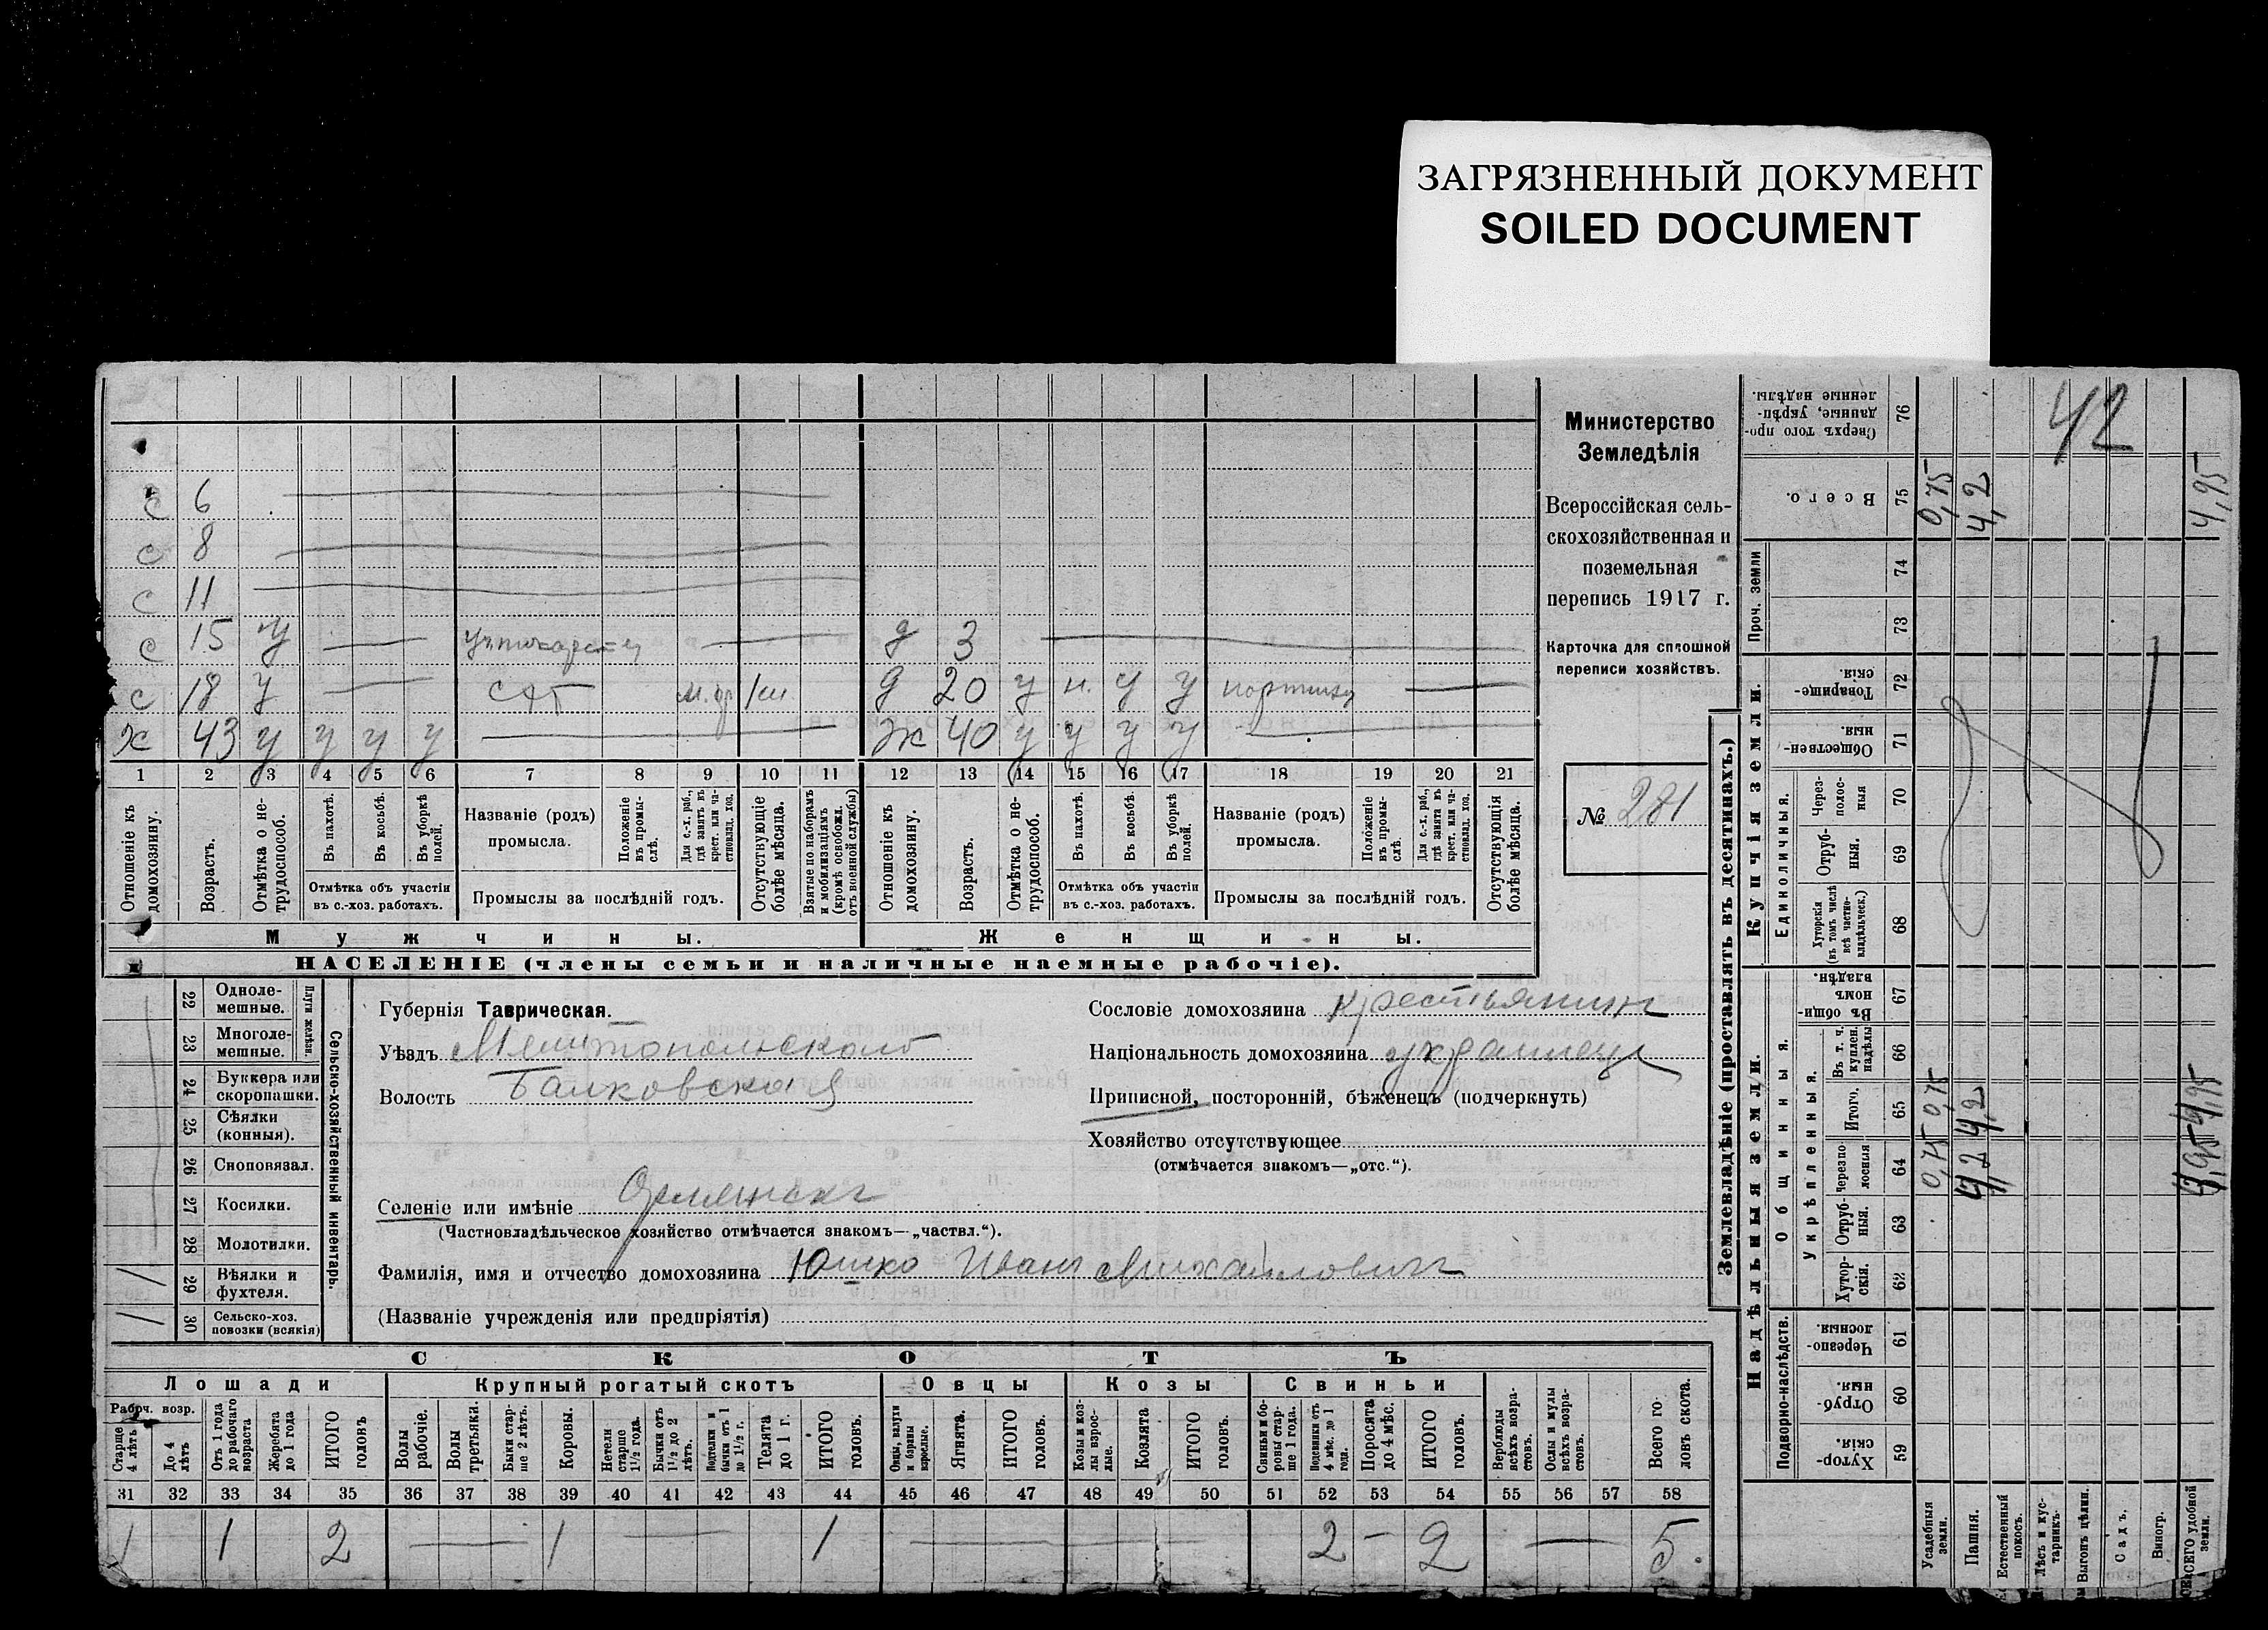 ЗАГРЯЗНЕННЫЙ ДОКУМЕНТ
SOILED DOCUMENT
с 6
с 8
с 11
с 15 у — —
д 3
с 18 у —
д 20 у н. у у
х 43 у у у у
ж 40 у у у у
1 2 3 4 5 6 7 8 9 10 11 12 13 14 15 16 17 18 19 20 21
Отношеніе къ домохозяину.
Возрастъ.
Отмѣтка о не-трудоспособ.
Въ пахотѣ.
Въ косьбѣ.
Въ уборкѣ полей.
Отмѣтка объ участіи
въ с.-хоз. работахъ.
Названіе (родъ)
промысла.
Положеніе въ промыслѣ.
Для с.-х. раб., гдѣ занятъ въ крест. или частновлад. хоз.
Промыслы за послѣдній годъ.
Отсутствующіе болѣе мѣсяца.
Взятые по наборамъ и мобилизаціямъ (кромѣ освобожд. отъ военной службы)
Отношеніе къ домохозяину.
Возрастъ.
Отмѣтка о не-трудоспособ.
Въ пахотѣ.
Въ косьбѣ.
Въ уборкѣ полей.
Отмѣтка объ участіи
въ с.-хоз. работахъ.
Названіе (родъ)
промысла.
Положеніе въ промыслѣ.
Для с.-х. раб., гдѣ занята въ крест. или частновлад. хоз.
Промыслы за послѣдній годъ.
Отсутствующія болѣе мѣсяца.
Мужчины.
Женщины.
НАСЕЛЕНІЕ (члены семьи и наличные наемные рабочіе).
Министерство
Земледѣлія
Всероссійская сель-
скохозяйственная и
поземельная
перепись 1917 г.
Карточка для сплошной
переписи хозяйствъ.
№ 281
22 Одноле-мешные.
23 Многоле-мешные.
Плуги желѣзн.
24 Буккера или скоропашки.
25 Сѣялки (конныя).
26 Сноповязал.
27 Косилки.
28 Молотилки.
29 Вѣялки и фухтеля.
30 Сельско-хоз. повозки (всякія)
Сельско-хозяйственный инвентарь.
Губернія Таврическая.
Уѣздъ Мелитопольскаго
Волость Балковская
Селеніе или имѣніе
(Частновладѣльческое хозяйство отмѣчается знакомъ—„частвл.“).
Фамилія, имя и отчество домохозяина Юшко Иванъ Михайловичъ
(Названіе учрежденія или предпріятія)
Сословіе домохозяина крестьянинъ
Національность домохозяина украинец
Приписной, посторонній, бѣженецъ (подчеркнуть)
Хозяйство отсутствующее
(отмѣчается знакомъ—„отс.“).
СКОТЪ
Лошади
Крупный рогатый скотъ
Овцы
Козы
Свиньи
Рабоч. возр.
Старше 4 лѣтъ
До 4 лѣтъ
Отъ 1 года до рабочаго возраста
Жеребята до 1 года
ИТОГО головъ
Волы рабочіе.
Волы третьяки.
Быки старше 2 лѣтъ.
Коровы.
Нетели старше 1½ года.
Бычки отъ 1½ до 2 лѣтъ.
Подтелки и бычки отъ 1 до 1½ г.
Телята до 1 г.
ИТОГО головъ.
Овцы, валухи и бараны взрослые.
Ягнята.
ИТОГО головъ.
Козы и козлы взрослые.
Козлята
ИТОГО головъ.
Свиньи и боровы старше 1 года.
Подсвинки отъ 4 мѣс. до 1 года.
Поросята до 4 мѣс.
ИТОГО головъ.
Верблюды всѣхъ возрастовъ.
Ослы и мулы всѣхъ возрастовъ.
Всего головъ скота.
31 32 33 34 35 36 37 38 39 40 41 42 43 44 45 46 47 48 49 50 51 52 53 54 55 56 57 58
1 1 2 — 1 — 1 — 2 — 2 — 5.
Землевладѣніе (проставлять въ десятинахъ.)
Купчія земли.
Надѣльныя земли.
Сверхъ того про-данные, укрѣп-ленные надѣлы. 76
Всего. 75
0,75
4,2
4,95
42
Проч. земли
74
73
Товарище-скія. 72
Обществен-ныя 71
Единоличныя.
Через-полос-ныя 70
Отруб-ныя. 69
Хуторскія (въ томъ числѣ всѣ частно-владѣльческ.) 68
Общинныя.
Въ общинномъ владѣн. 67
Укрѣпленныя.
Въ т. ч. куплен. надѣлы 66
Итого. 65
Черезполосныя 64
Отруб-ныя. 63
Хутор-скія. 62
0,75 0,75
4,2 4,2
4,95 4,95
Подворно-наслѣдств.
Черезпо-лосныя. 61
Отруб-ныя. 60
Хутор-скія. 59
Усадебныя земли.
Пашня.
Естественный покосъ.
Лѣсъ и кус-тарникъ.
Выгонъ цѣлин.
Садъ.
Виногр.
ВСЕГО удобной земли.